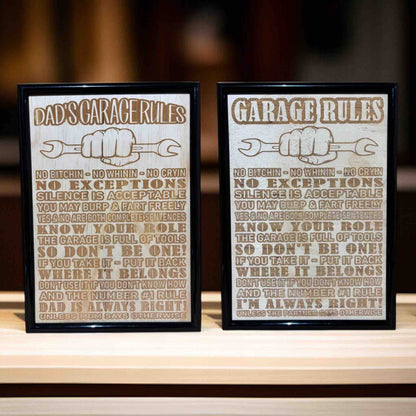 DAD'S GARAGE RULES
NO BITCHIN - NO WHININ - NO CRYIN
NO EXCEPTIONS
SILENCE IS ACCEPTABLE
YOU MAY BURP & FART FREELY
YES & NO ARE BOTH COMPLETE SENTENCES
KNOW YOUR ROLE
THE GARAGE IS FULL OF TOOLS
SO DON'T BE ONE!
IF YOU TAKE IT - PUT IT BACK
WHERE IT BELONGS
DON'T USE IT IF YOU DON'T KNOW HOW
AND THE NUMBER #1 RULE
DAD IS ALWAYS RIGHT!
UNLESS MUM SAYS OTHERWISE
GARAGE RULES
NO BITCHIN - NO WHININ - NO CRYIN
NO EXCEPTIONS
SILENCE IS ACCEPTABLE
YOU MAY BURP & FART FREELY
YES & NO ARE BOTH COMPLETE SENTENCES
KNOW YOUR ROLE
THE GARAGE IS FULL OF TOOLS
SO DON'T BE ONE!
IF YOU TAKE IT - PUT IT BACK
WHERE IT BELONGS
DON'T USE IT IF YOU DON'T KNOW HOW
AND THE NUMBER #1 RULE
I'M ALWAYS RIGHT!
UNLESS THE PARTNER SAYS OTHERWISE